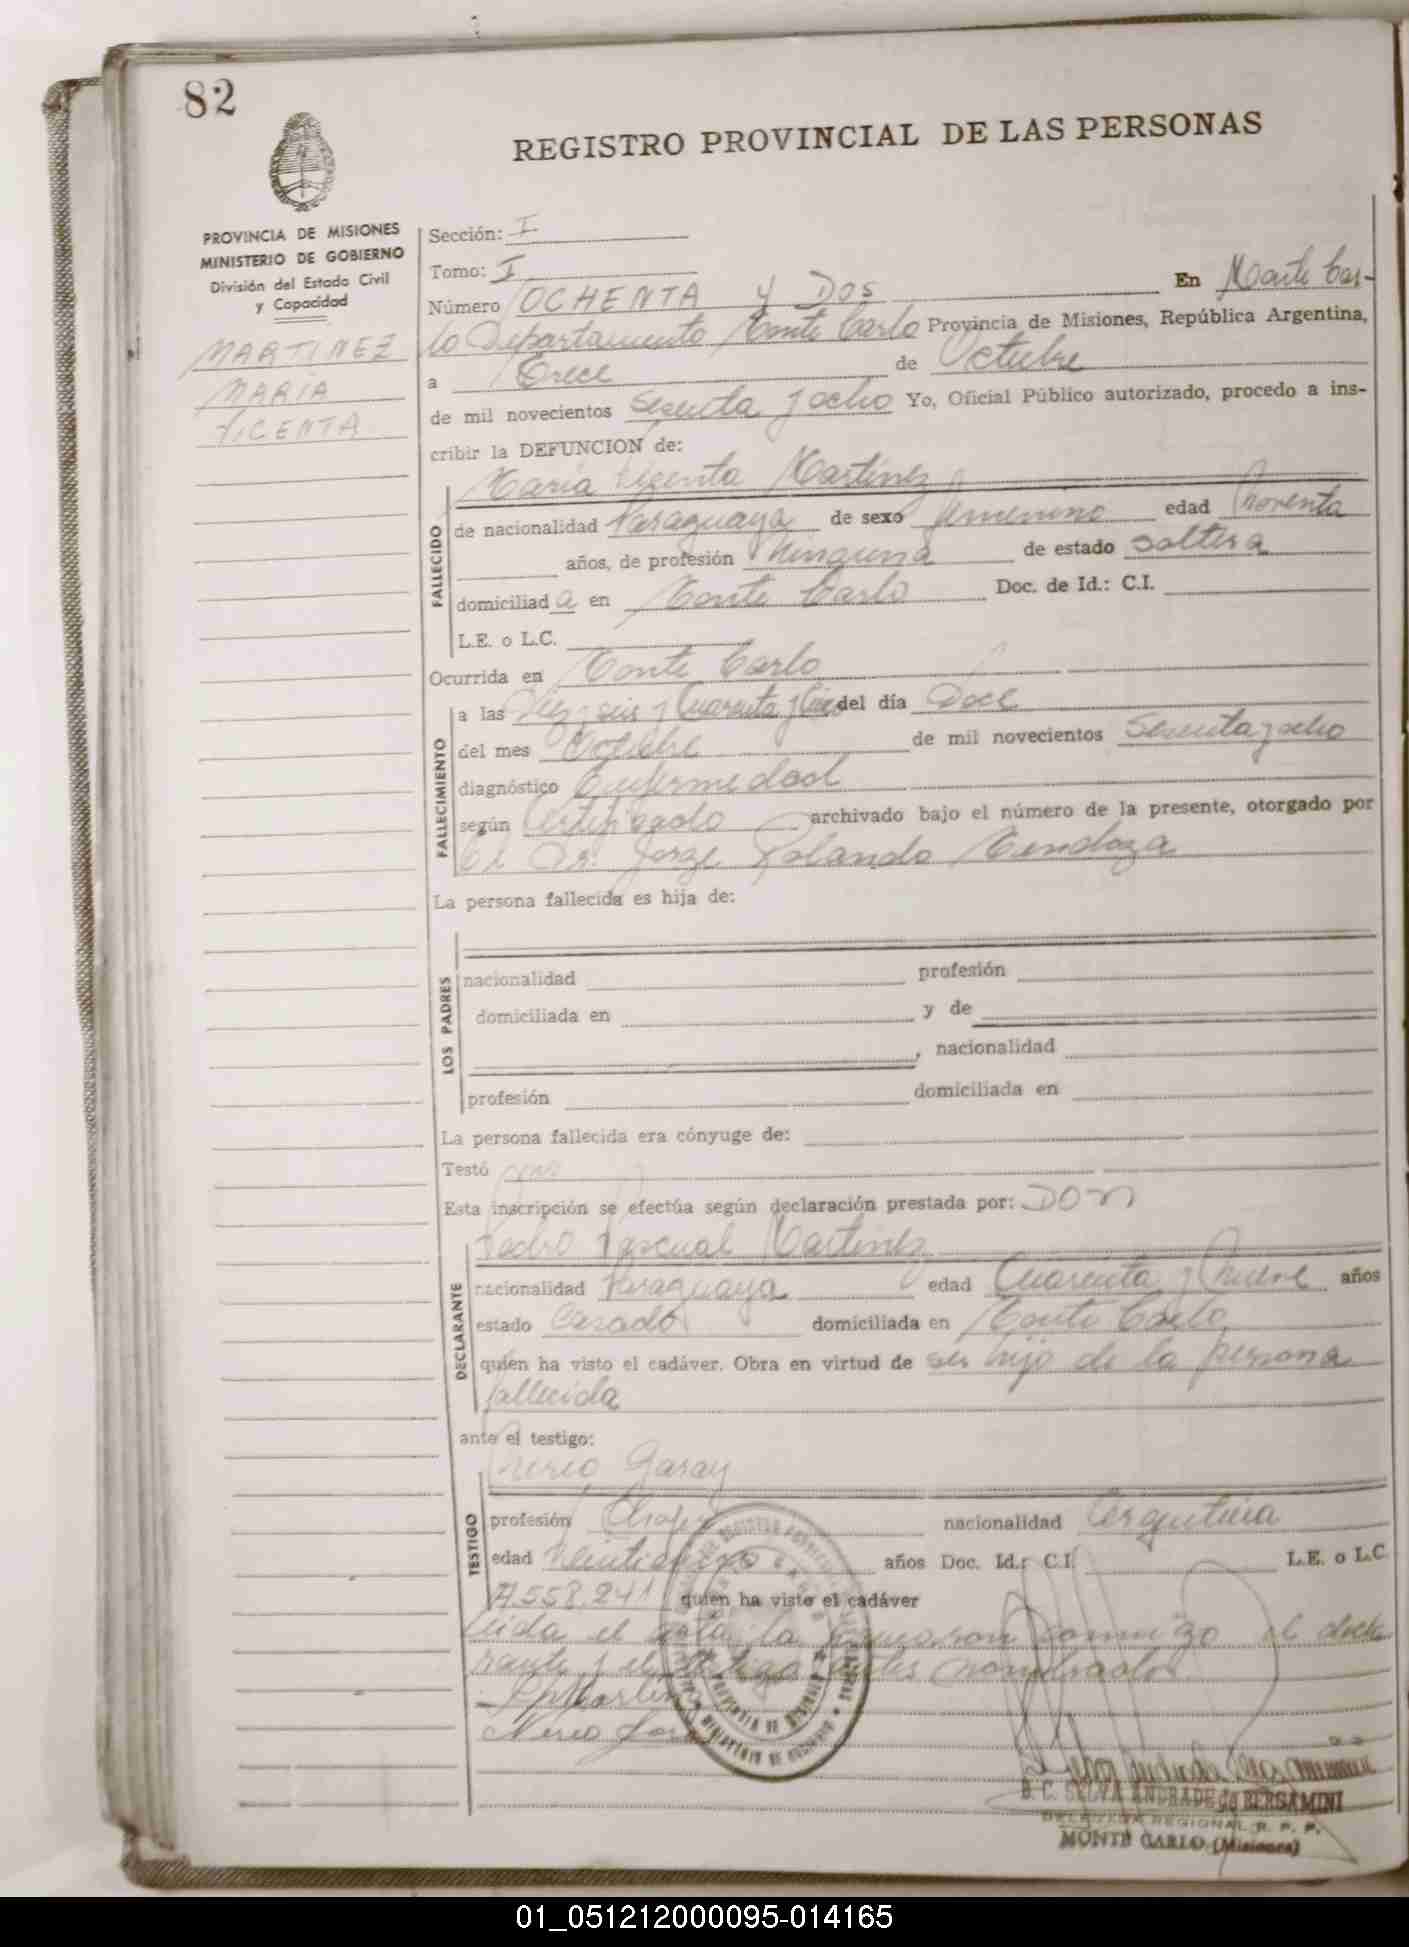 82
REGISTRO PROVINCIAL DE LAS PERSONAS
PROVINCIA DE MISIONES
MINISTERIO DE GOBIERNO
División del Estado Civil
y Capacidad
MARTINEZ
MARIA
VICENTA
Sección: I
Tomo: I
Número OCHENTA y DOS En Monte Car-
lo Departamento Monte Carlo Provincia de Misiones, República Argentina,
a Trece de Octubre
de mil novecientos Sesenta y ocho Yo, Oficial Público autorizado, procedo a ins-
cribir la DEFUNCION de:
Maria Vicenta Martinez
FALLECIDO
de nacionalidad Paraguaya de sexo femenino edad Noventa
años, de profesión Ninguna de estado soltera
domiciliad a en Monte Carlo Doc. de Id.: C.I.
L.E. o L.C.
Ocurrida en Monte Carlo
FALLECIMIENTO
a las Diez y seis y Cuarenta y Cinco del día Doce
del mes Octubre de mil novecientos Sesenta y ocho
diagnóstico Enfermedad
según Certificado archivado bajo el número de la presente, otorgado por
El Dr. Jorge Rolando Mendoza
La persona fallecida es hija de:
LOS PADRES
nacionalidad profesión
domiciliada en y de
, nacionalidad
profesión domiciliada en
La persona fallecida era cónyuge de:
Testó
Esta inscripción se efectúa según declaración prestada por: DON
Pedro Pascual Martinez
DECLARANTE
nacionalidad Paraguaya edad Cuarenta y Nueve años
estado Casado domiciliada en Monte Carlo
quien ha visto el cadáver. Obra en virtud de ser hijo de la persona
fallecida
ante el testigo:
Nereo Garay
TESTIGO
profesión Chofer nacionalidad Argentina
edad años Doc. Id.: C.I. L.E. o L.C.
7.558.241 quien ha visto el cadáver
Leida el acta la firmaron conmigo el decla
rante y el testigo antes nombrados.
P. P. Martinez
Nereo Garay
B. C. SELVA ANDRADE de BERGAMINI
DELEGADA REGIONAL R. P. P.
MONTE CARLO (Misiones)
01_051212000095-014165